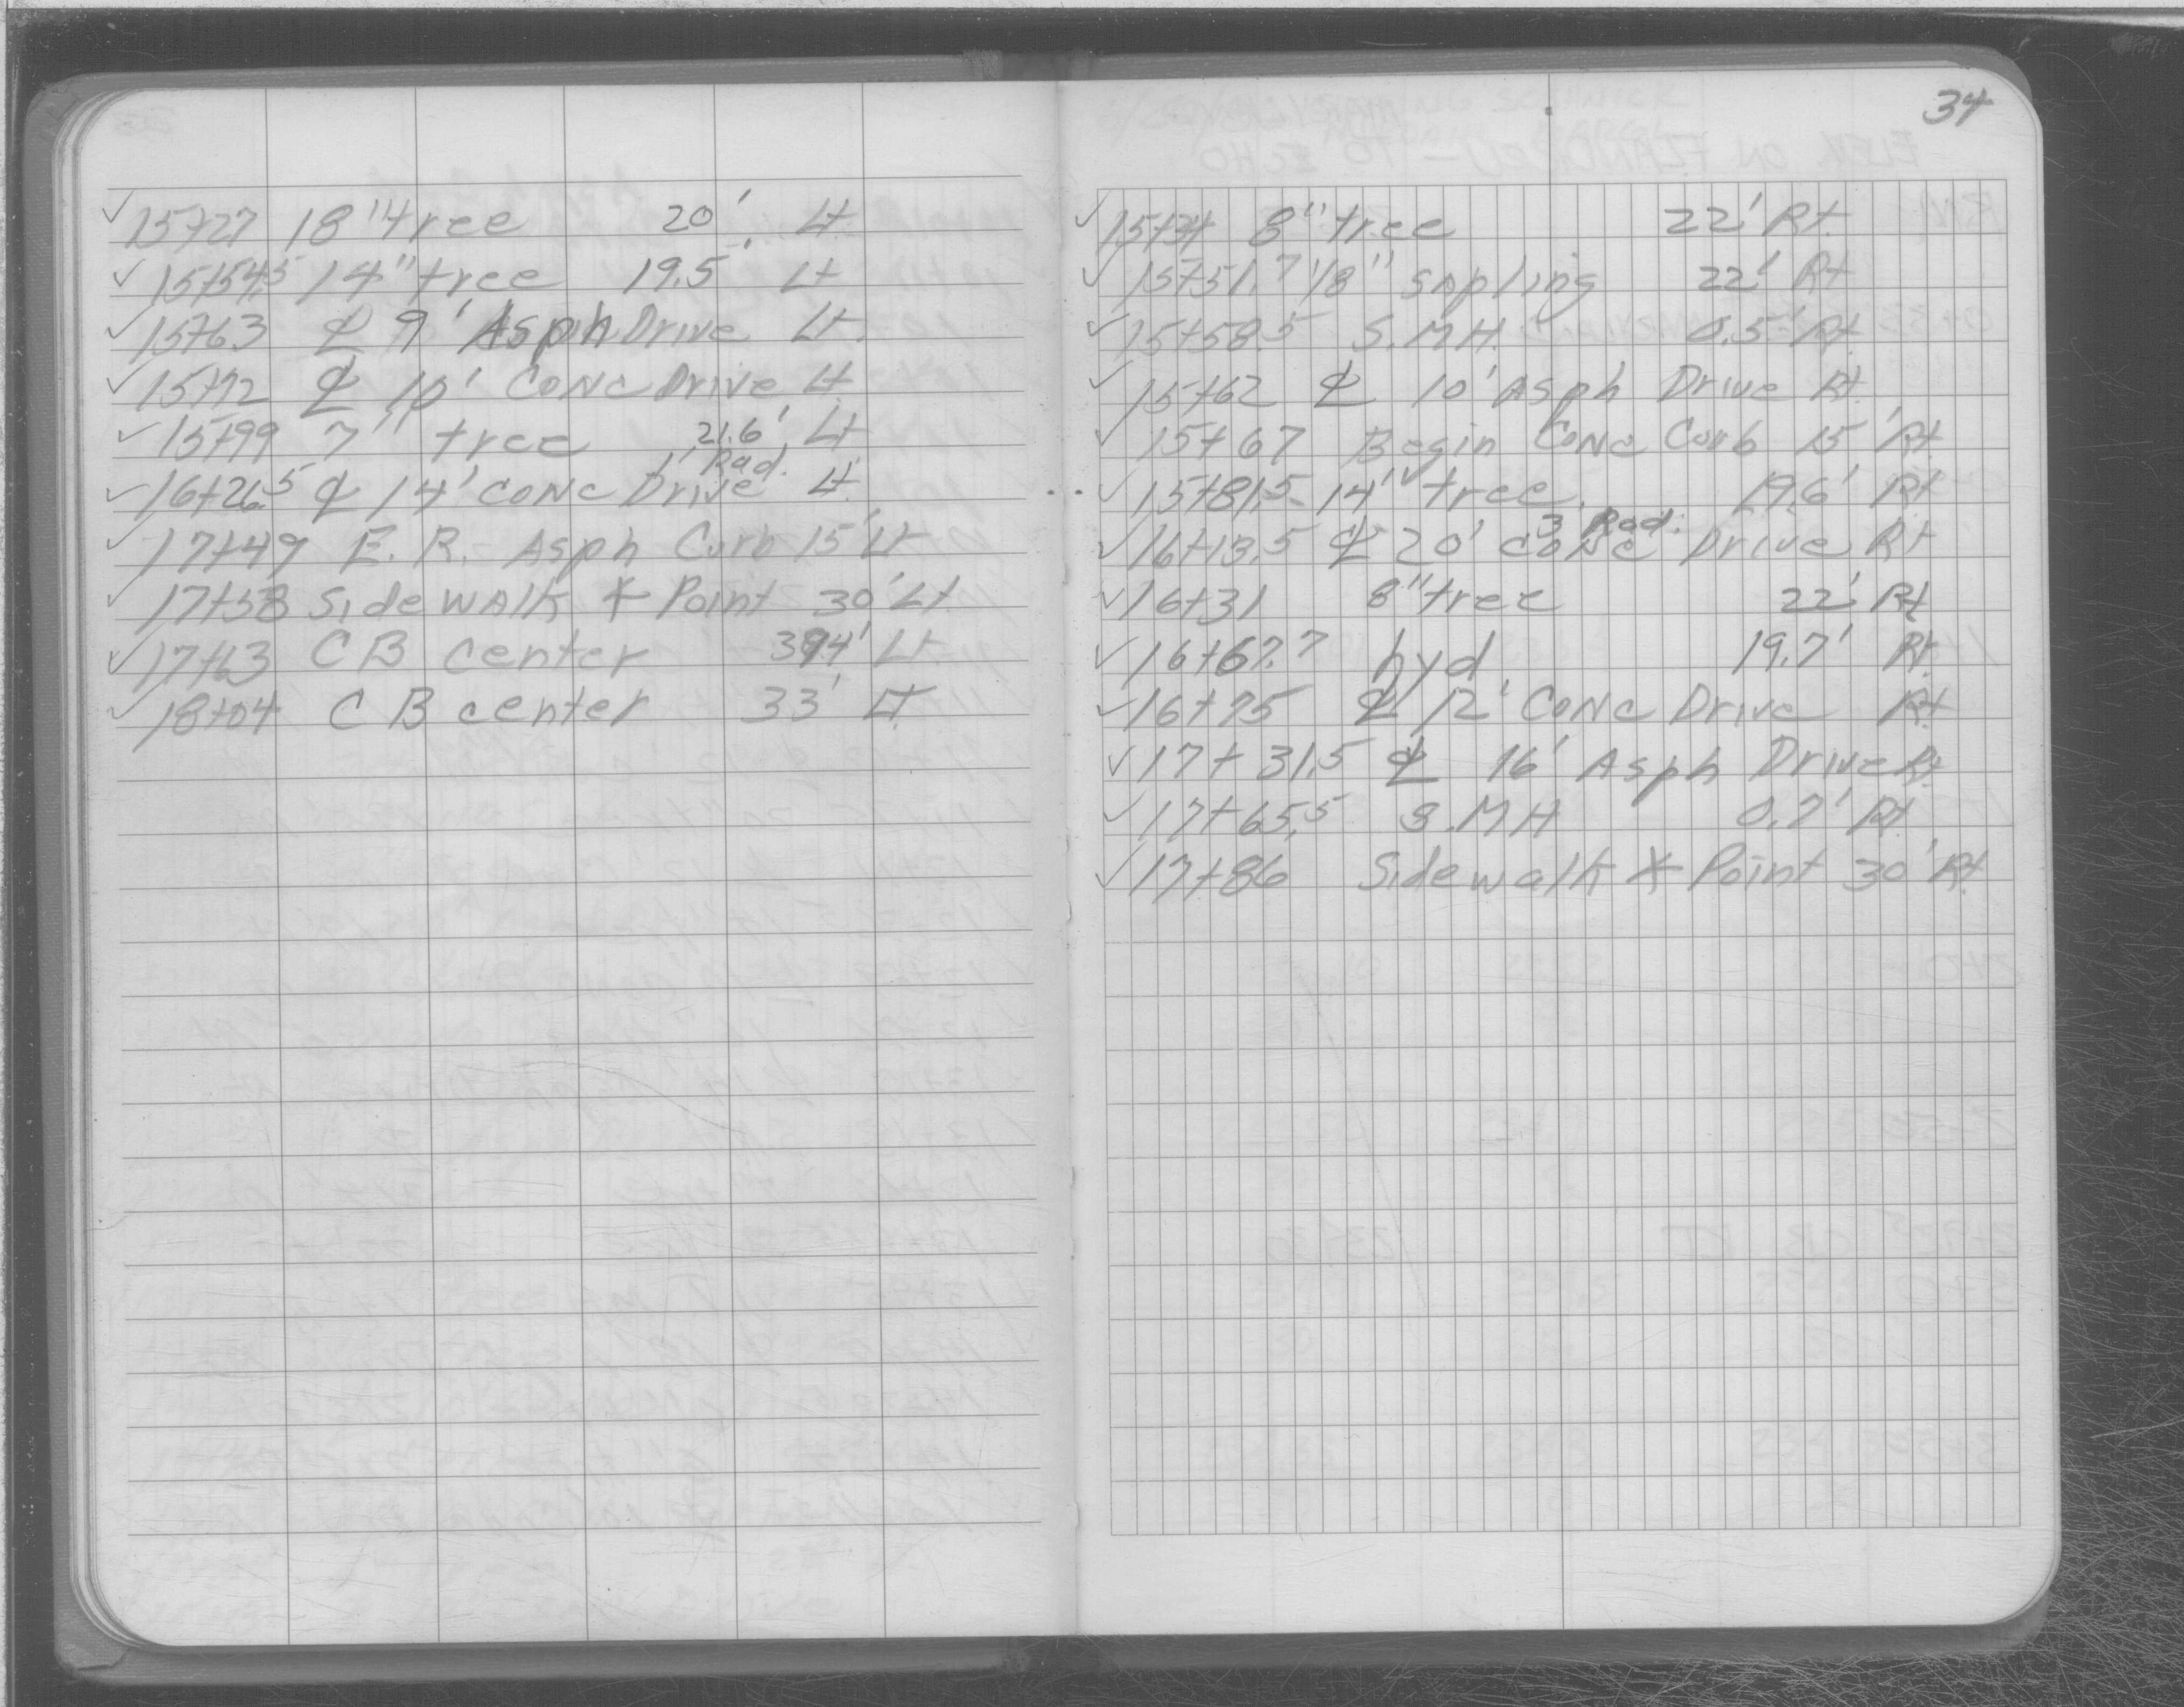 ✓ 15+27 18" tree 20' Lt
✓ 15+54.5 14" tree 19.5' Lt
✓ 15+63 ℄ 9' Asph Drive Lt.
✓ 15+72 ℄ 10' Conc Drive Lt.
✓ 15+99 7" tree 21.6' Lt
1' Rad.
✓ 16+26.5 ℄ 14' conc Drive Lt.
✓ 17+49 E.R. Asph Curb 15' Lt
✓ 17+58 Sidewalk X Point 30' Lt
✓ 17+63 CB center Lt.
✓ 18+04 CB center 33' Lt.
34
✓ 15+34 8" tree 22' Rt.
✓ 15+51.7 1/8" sapling 22' Rt
✓ 15+58.5 S.M.H. 0.5' Rt.
✓ 15+62 ℄ 10' Asph Drive Rt.
✓ 15+67 Begin Conc Curb 15' Rt
✓ 15+81.5 14" tree 19.6' Rt
3' Rad.
✓ 16+13.5 ℄ 20' conc Drive Rt
✓ 16+31 8" tree 22' Rt
✓ 16+67.7 hyd 19.7' Rt.
✓ 16+75 ℄ 12' Conc Drive Rt.
✓ 17+31.5 ℄ 16' Asph Drive Rt.
✓ 17+65.5 S.MH 0.7' Rt.
✓ 17+86 Sidewalk X Point 30' Rt.